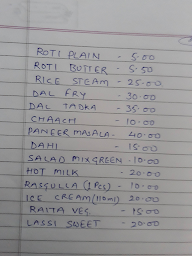 ROTI PLAIN - 5.00
ROTI BUTTER - 5.50
RICE STEAM - 25.00
DAL FRY - 30.00
DAL TADKA - 35.00
CHAACH - 10.00
PANEER MASALA - 40.00
DAHI - 15.00
SALAD MIXGREEN - 10.00
HOT MILK - 20.00
RASGULLA (1 PCS) - 10.00
ICE CREAM (110ml) 20.00
RAITA VEG. - 15.00
LASSI SWEET - 20.00